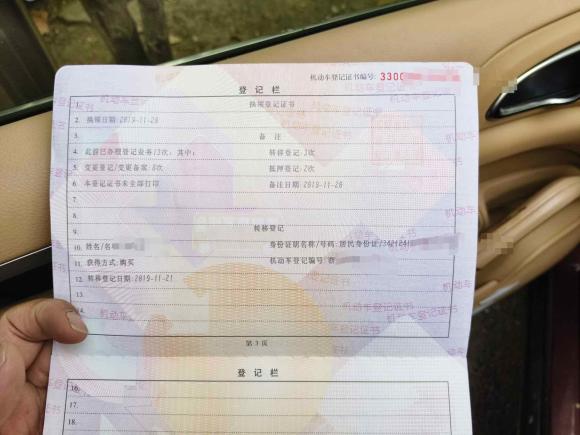 机动车登记证书编号: 3300
登 记 栏
1. 换领登记证书
2. 换领日期:2019-11-28
3. 备 注
4. 此前已办理登记业务13次，其中: 转移登记:3次
5. 变更登记/变更备案:8次 抵押登记:2次
6. 本登记证书未全部打印 备注日期:2019-11-28
7.
8.
9. 转移登记
10. 姓名/名 身份证明名称/号码:居民身份证/342124
11. 获得方式:购买 机动车登记编号:
12. 转移登记日期:2019-11-21
13.
14.
第 3 页
登 记 栏
16.
17.
18.